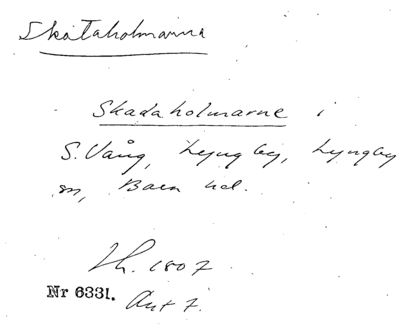 Skataholmarna
Skadaholmarne i
S. Vång, Lyngby, Lyngby
sn, Bara hd.
Lh. 1807
Nr 6331. Akt 7.